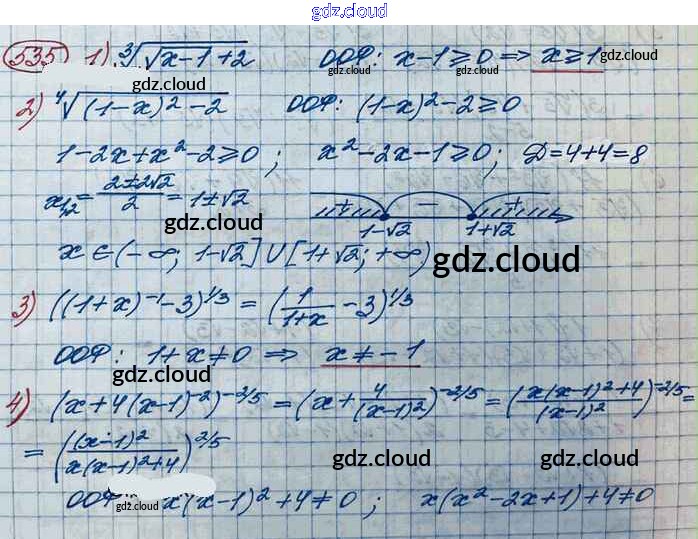 gdz.cloud
535 1) ∛(√(x-1)+2) ООФ: x-1≥0 ⇒ x≥1
gdz.cloud gdz.cloud gdz.cloud
2) ⁴√((1-x)²-2) ООФ: (1-x)²-2≥0
1-2x+x²-2≥0; x²-2x-1≥0; D=4+4=8
gdz.cloud
x₁,₂ = (2±2√2)/2 = 1±√2 + - +
gdz.cloud 1-√2 1+√2
x∈(-∞; 1-√2]∪[1+√2; +∞) gdz.cloud
3) ((1+x)⁻¹-3)^1/3 = (1/(1+x) -3)^1/3
ООФ: 1+x≠0 ⇒ x≠-1
gdz.cloud
4) (x+4(x-1)⁻²)^-2/5 = (x+4/(x-1)²)^-2/5 = ((x(x-1)²+4)/(x-1)²)^-2/5 =
gdz.cloud
= ((x-1)²/(x(x-1)²+4))^2/5
gdz.cloud gdz.cloud
ООФ: x(x-1)²+4≠0; x(x²-2x+1)+4≠0
gdz.cloud